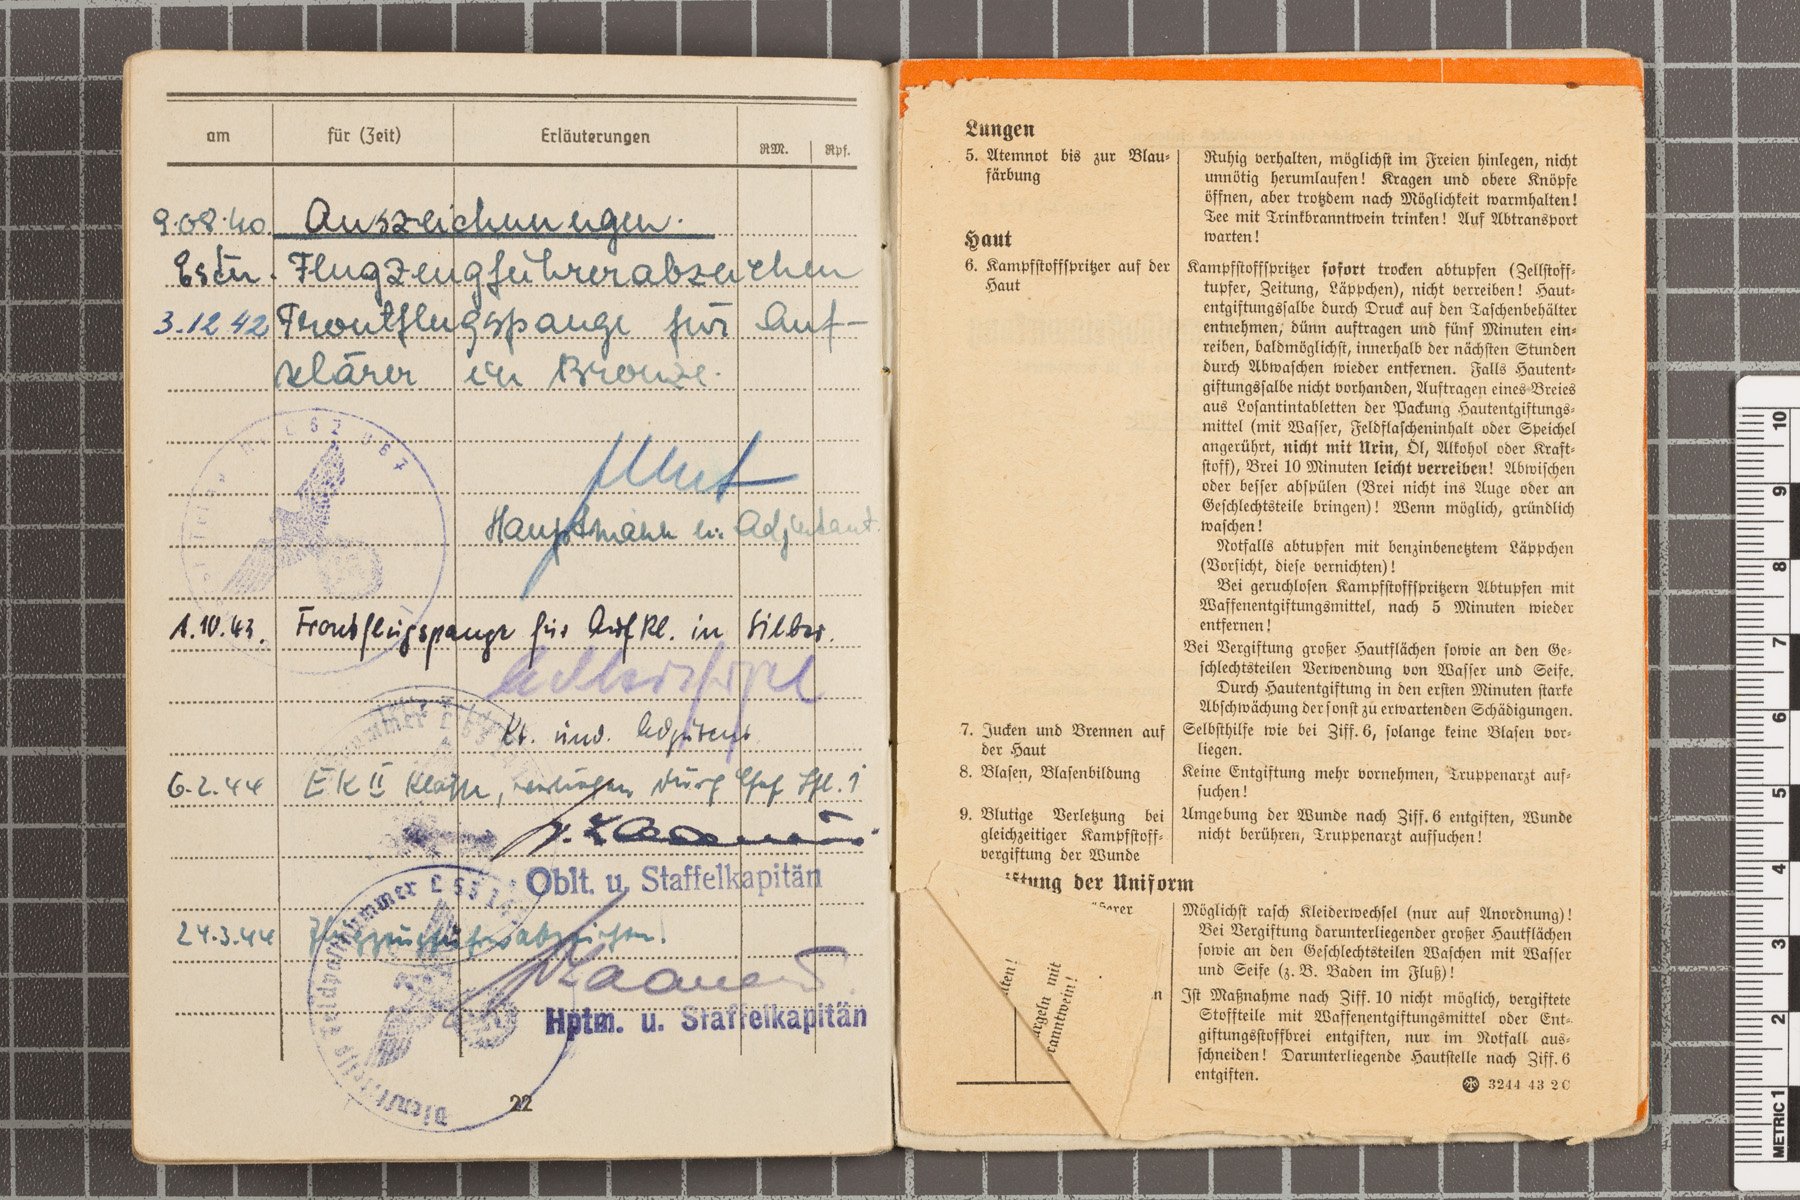 am für (Zeit) Erläuterungen RM. Rpf.
9.08.40. Auszeichnungen.
Flugzeugführerabzeichen
3.12.42 Frontflugspange für Auf-
klärer in Bronze.
Hauptmann u. Adjutant.
1.10.43. Frontflugspange für Aufkl. in Silber.
Lt. und Adjutant
6.2.44 EK II Klasse, verliehen durch Chef
Oblt. u. Staffelkapitän
24.3.44 Flugzeugführerabzeichen.
Hptm. u. Staffelkapitän
Dienststelle Feldpostnummer L
22
Lungen
5. Atemnot bis zur Blau-
färbung
Ruhig verhalten, möglichst im Freien hinlegen, nicht
unnötig herumlaufen! Kragen und obere Knöpfe
öffnen, aber trotzdem nach Möglichkeit warmhalten!
Tee mit Trinkbranntwein trinken! Auf Abtransport
warten!
Haut
6. Kampfstoffspritzer auf der
Haut
Kampfstoffspritzer sofort trocken abtupfen (Zellstoff-
tupfer, Zeitung, Läppchen), nicht verreiben! Haut-
entgiftungssalbe durch Druck auf den Taschenbehälter
entnehmen, dünn auftragen und fünf Minuten ein-
reiben, baldmöglichst, innerhalb der nächsten Stunden
durch Abwaschen wieder entfernen. Falls Hautent-
giftungssalbe nicht vorhanden, Auftragen eines Breies
aus Losantintabletten der Packung Hautentgiftungs-
mittel (mit Wasser, Feldflascheninhalt oder Speichel
angerührt, nicht mit Urin, Öl, Alkohol oder Kraft-
stoff), Brei 10 Minuten leicht verreiben! Abwischen
oder besser abspülen (Brei nicht ins Auge oder an
Geschlechtsteile bringen)! Wenn möglich, gründlich
waschen!
Notfalls abtupfen mit benzinbenetztem Läppchen
(Vorsicht, diese vernichten)!
Bei geruchlosen Kampfstoffspritzern Abtupfen mit
Waffenentgiftungsmittel, nach 5 Minuten wieder
entfernen!
Bei Vergiftung großer Hautflächen sowie an den Ge-
schlechtsteilen Verwendung von Wasser und Seife.
Durch Hautentgiftung in den ersten Minuten starke
Abschwächung der sonst zu erwartenden Schädigungen.
7. Jucken und Brennen auf
der Haut
Selbsthilfe wie bei Ziff. 6, solange keine Blasen vor-
liegen.
8. Blasen, Blasenbildung
Keine Entgiftung mehr vornehmen, Truppenarzt auf-
suchen!
9. Blutige Verletzung bei
gleichzeitiger Kampfstoff-
vergiftung der Wunde
Umgebung der Wunde nach Ziff. 6 entgiften, Wunde
nicht berühren, Truppenarzt aufsuchen!
iftung der Uniform
Möglichst rasch Kleiderwechsel (nur auf Anordnung)!
Bei Vergiftung darunterliegender großer Hautflächen
sowie an den Geschlechtsteilen Waschen mit Wasser
und Seife (z. B. Baden im Fluß)!
Ist Maßnahme nach Ziff. 10 nicht möglich, vergiftete
Stoffteile mit Waffenentgiftungsmittel oder Ent-
giftungsstoffbrei entgiften, nur im Notfall aus-
schneiden! Darunterliegende Hautstelle nach Ziff. 6
entgiften.
lten!
rgeln mit
ranntwein!
3244 43 2 C
10
9
8
7
6
5
4
3
2
METRIC 1